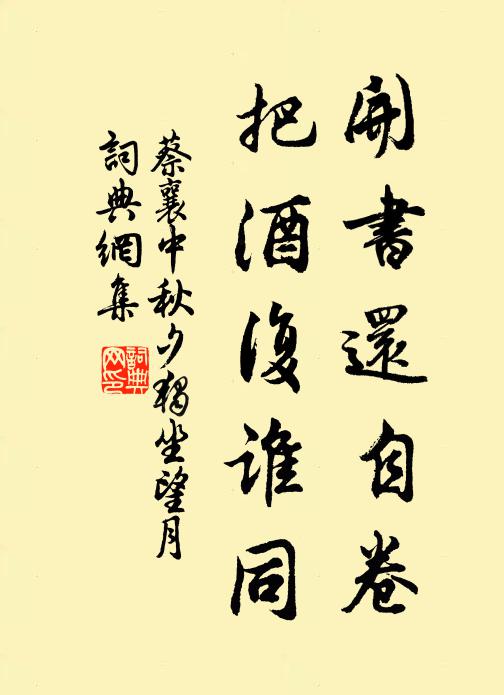 開書還自卷
把酒復誰同
蔡襄中秋夕獨坐望月
詞典網集
詞典网印